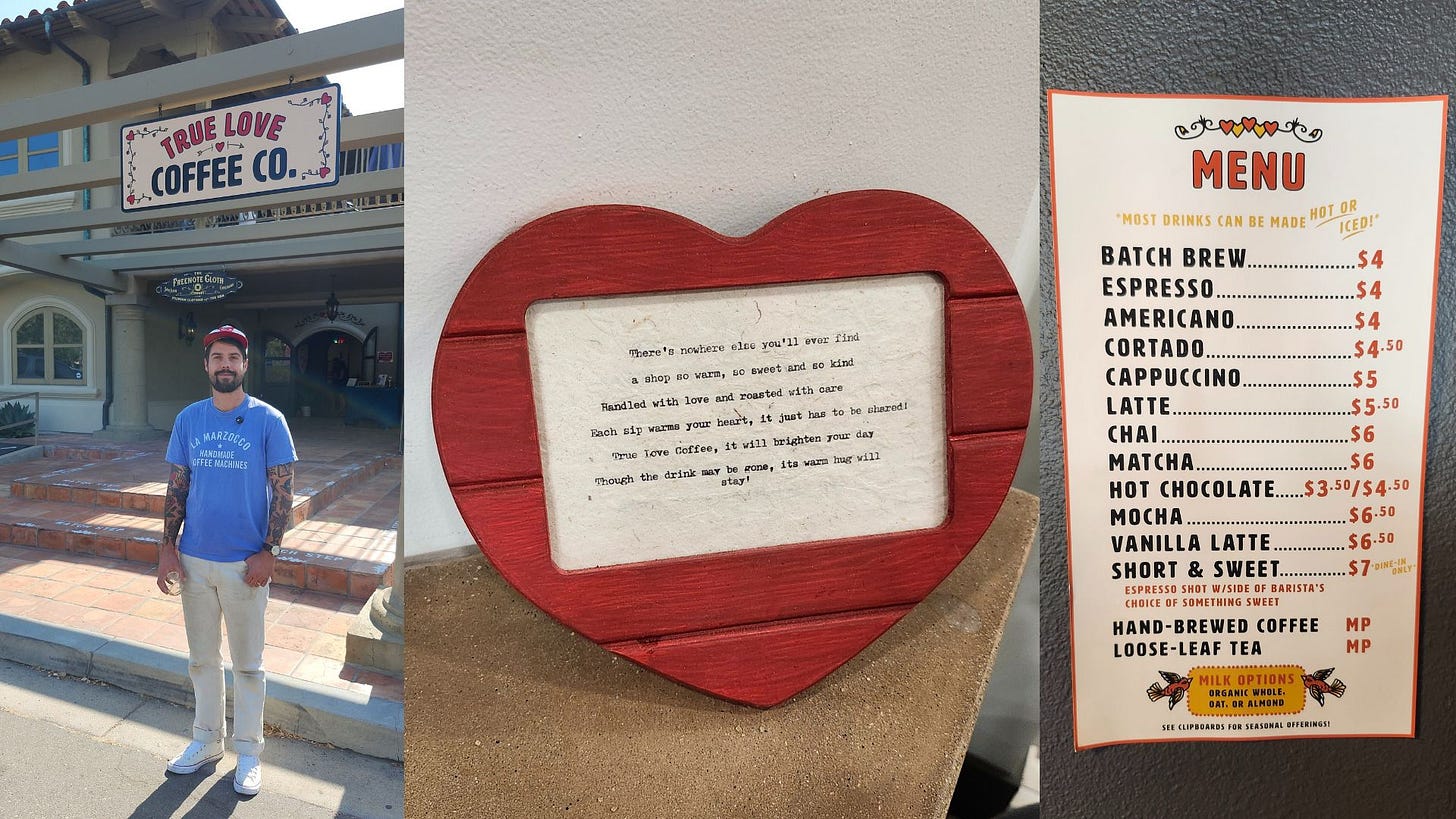 TRUE LOVE
COFFEE CO.
THE
FREENOTE CLOTH
COMPANY
LA MARZOCCO
HANDMADE
COFFEE MACHINES
There's nowhere else you'll ever find
a shop so warm, so sweet and so kind
Handled with love and roasted with care
Each sip warms your heart, it just has to be shared!
True Love Coffee, it will brighten your day
Though the drink may be gone, its warm hug will
stay!
MENU
*MOST DRINKS CAN BE MADE HOT OR
ICED!*
BATCH BREW..................$4
ESPRESSO.......................$4
AMERICANO...................$4
CORTADO........................$4.50
CAPPUCCINO..................$5
LATTE.............................$5.50
CHAI...............................$6
MATCHA.........................$6
HOT CHOCOLATE.....$3.50/$4.50
MOCHA..........................$6.50
VANILLA LATTE............$6.50
SHORT & SWEET..........$7 *DINE-IN
ONLY*
ESPRESSO SHOT W/SIDE OF BARISTA'S
CHOICE OF SOMETHING SWEET
HAND-BREWED COFFEE MP
LOOSE-LEAF TEA MP
MILK OPTIONS
ORGANIC WHOLE,
OAT, OR ALMOND
SEE CLIPBOARDS FOR SEASONAL OFFERINGS!